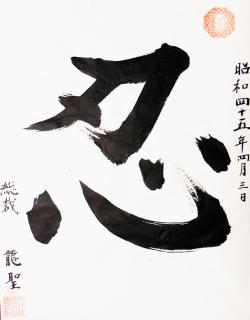 忍
昭和四十五年四月三日
総裁
龍聖